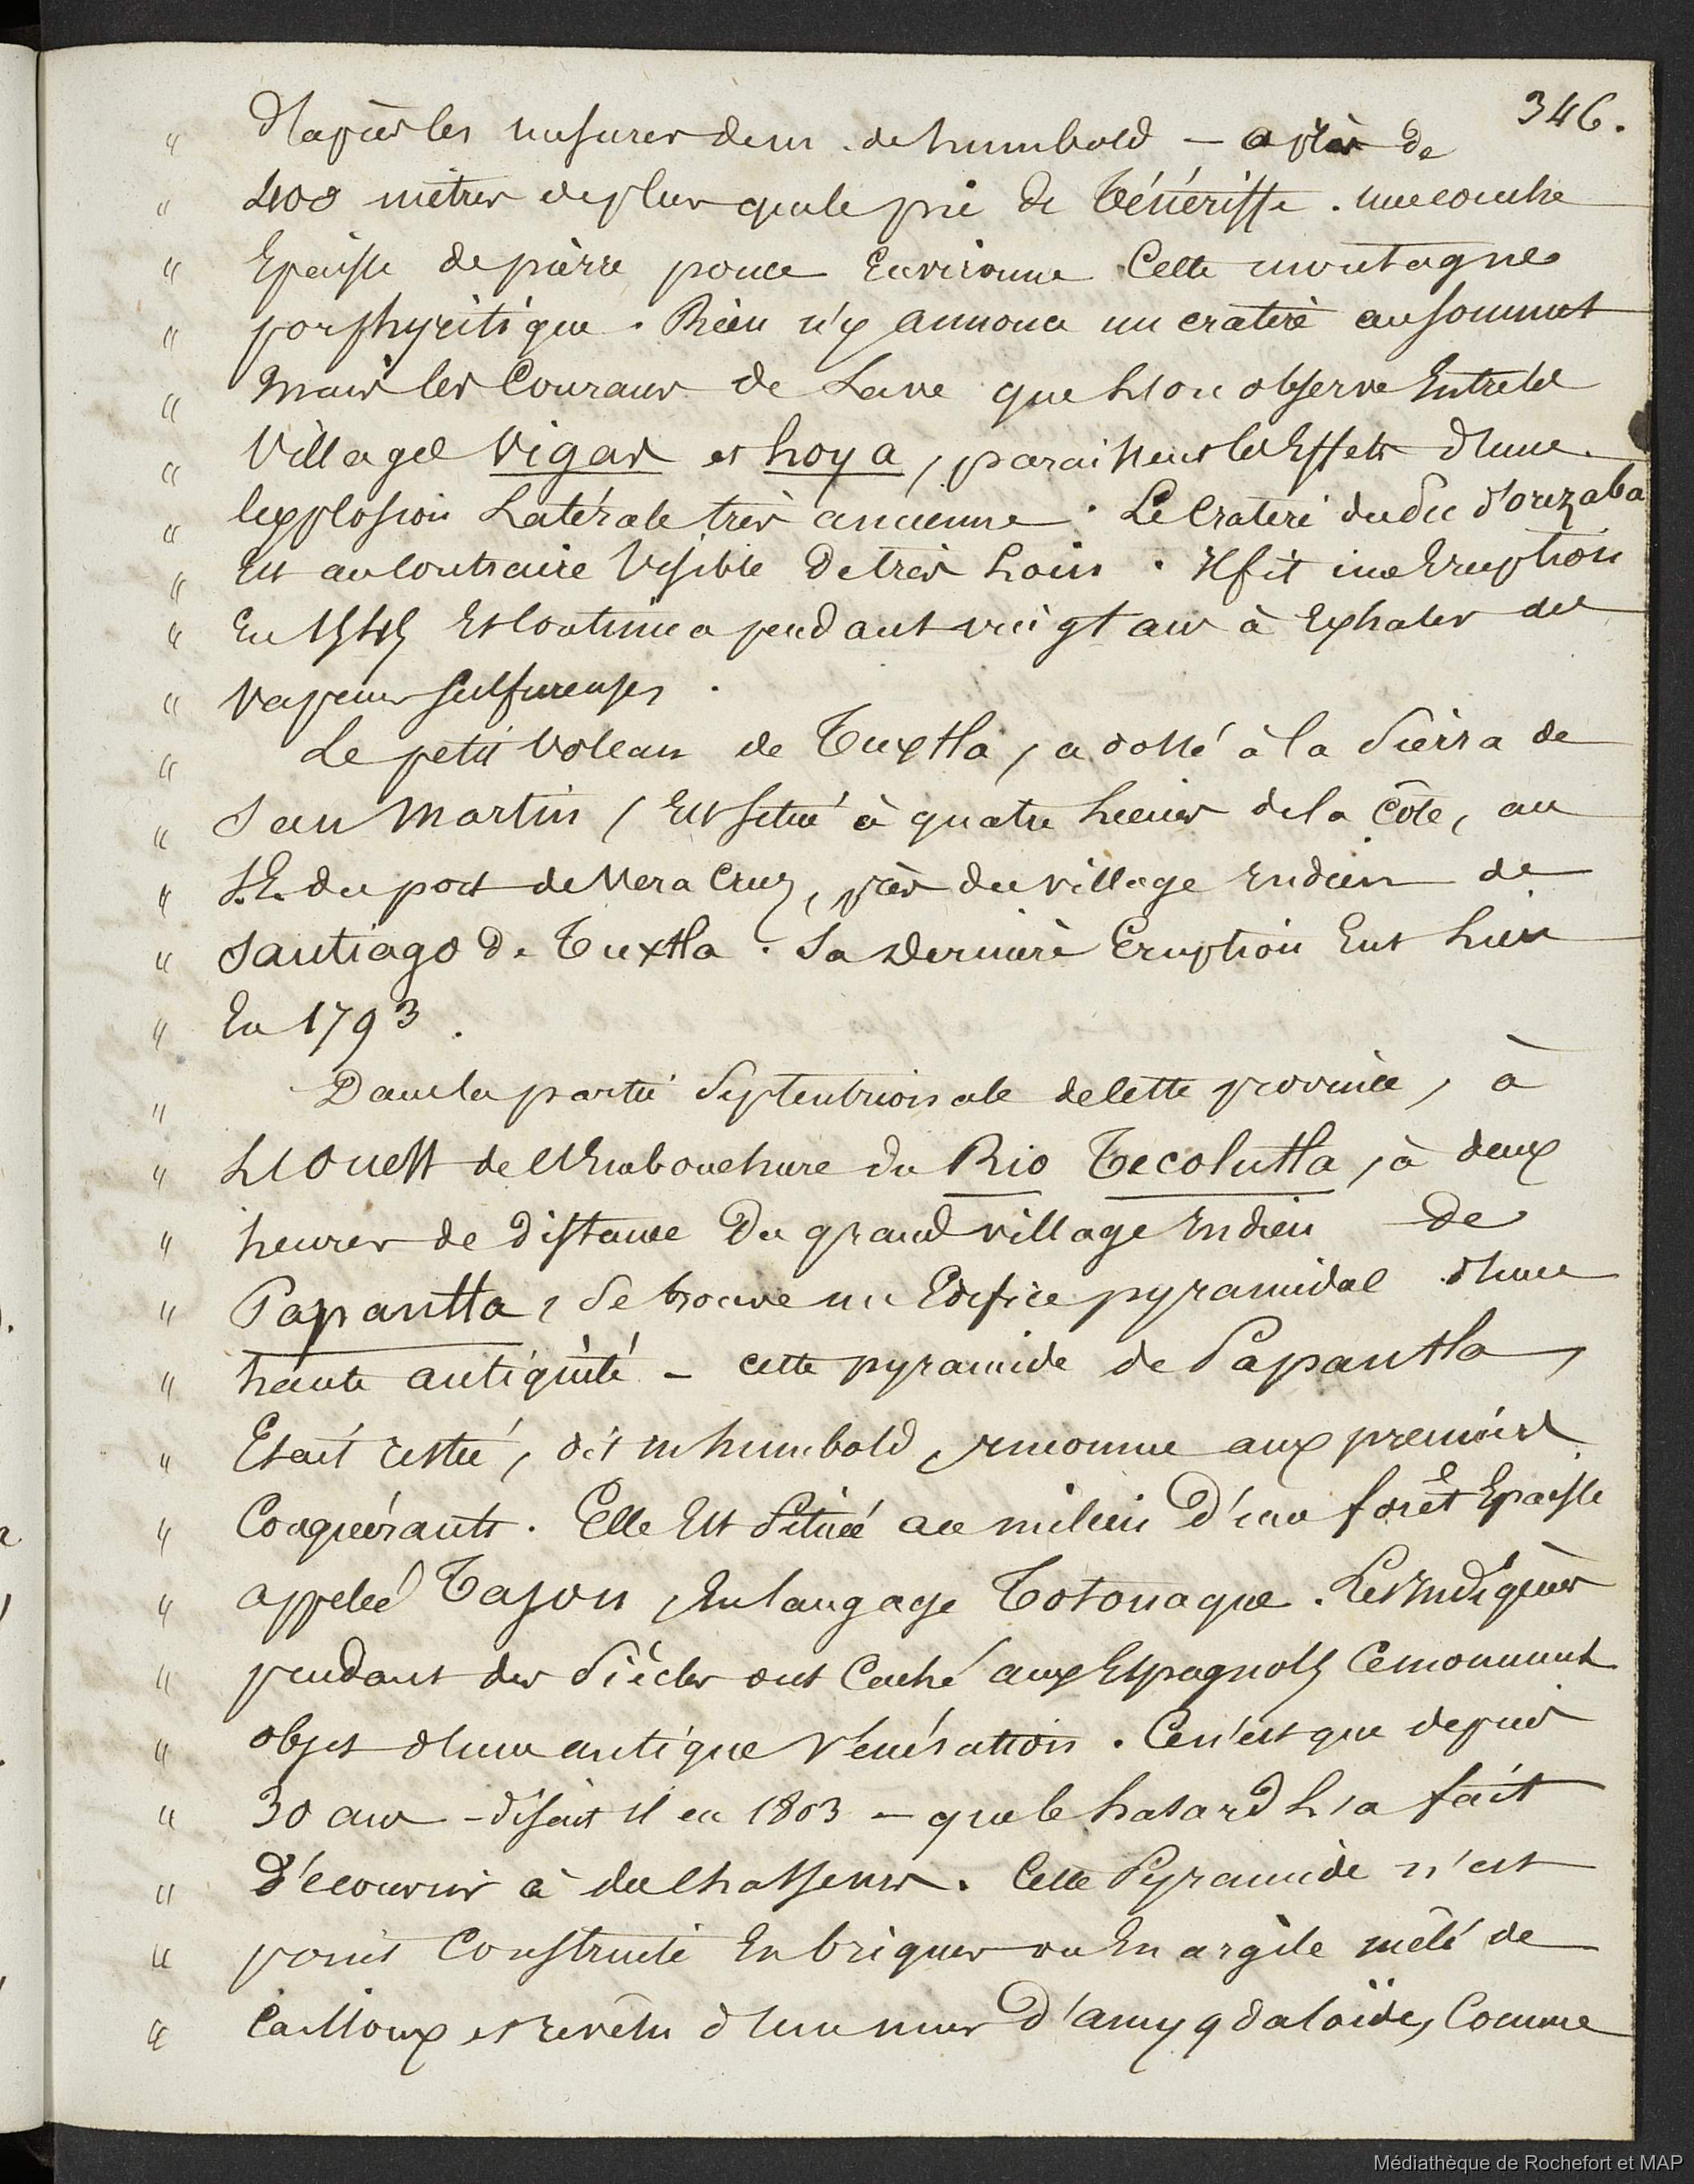 346.
" d'après les mesures de m. de humbold — a près de
" 400 mètres de plus que le pic de Ténériffe. une couche
" Epaisse de pierre ponce Environne Cette montagne
" porphyritique. Rien n'y annonce un cratère au sommet
" mais les Courans de Lave que L'on observe Entre les
" Villages Vigas et hoya, paraissent les Effets d'une
" Explosion Latérale très ancienne. Le Cratère du Pic d'orizaba
" Est au Contraire Visible de très Loin. Il fit une Eruption
" En 1545 Et Continua pendant vingt ans à Exhaler des
" Vapeurs Sulfureuses.
" Le petit Volcan de Tuxtla, adossé à la Sierra de
" San Martin, Est Situé à quatre Lieues de la Côte, au
" S.E. du port de Vera Cruz, près du village Indien de
" Santiago de Tuxtla. Sa Dernière Eruption Eut Lieu
" En 1793.
" Dans la partie Septentrionale de Cette province, à
" L'Ouest de l'Embouchure du Rio Tecolutla, à deux
" heures de distance du grand village Indien de
" Papantla, Se trouve un Edifice pyramidal d'une
" haute antiquité — cette pyramide de Papantla,
" Etait restée, dit m humbold, inconnue aux premiers
" Conquérants. Elle Est Située au milieu d'une forêt Epaisse
" appelée Tajon, En langage Totonaque. Les Indigènes
" pendant des Siècles ont Caché aux Espagnols Ce monument
" objet d'une antique Vénération. Ce n'est que depuis
" 30 ans — disait il en 1803 — que le hasard L'a fait
" Découvrir à des Chasseurs. Cette Pyramide n'est
" point Construite En briques ou En argile mêlé de
" Cailloux et revêtu d'un mur D'amygdaloïde, Comme
Médiathèque de Rochefort et MAP